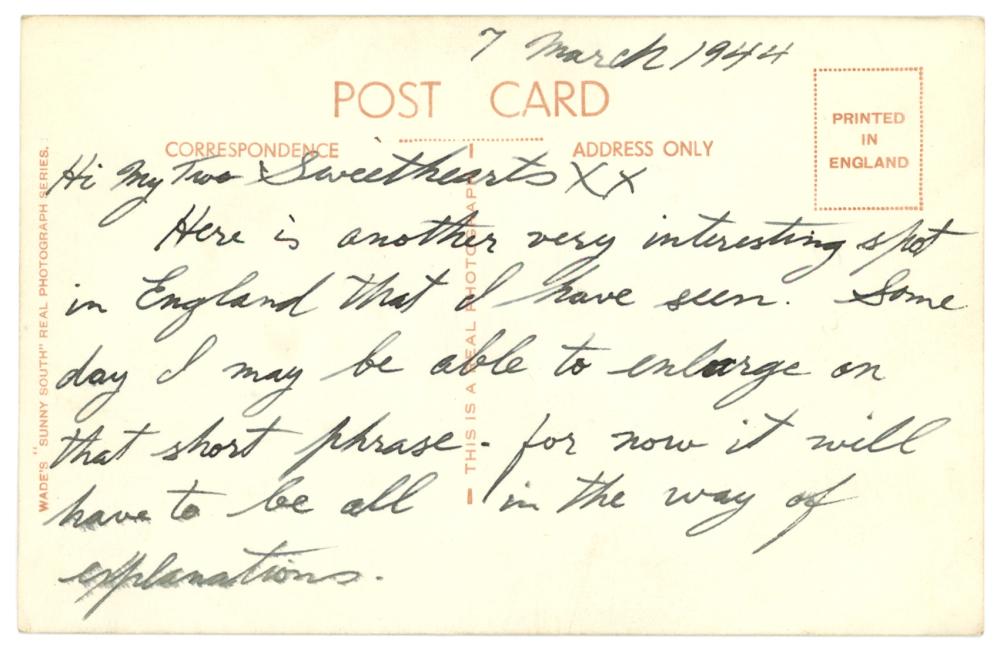 7 March 1944
POST CARD
CORRESPONDENCE
ADDRESS ONLY
PRINTED
IN
ENGLAND
WADE'S "SUNNY SOUTH" REAL PHOTOGRAPH SERIES.
THIS IS A REAL PHOTOGRAPH
Hi My Two Sweethearts XX
Here is another very interesting spot
in England that I have seen. Some
day I may be able to enlarge on
that short phrase - for now it will
have to be all in the way of
explanations.